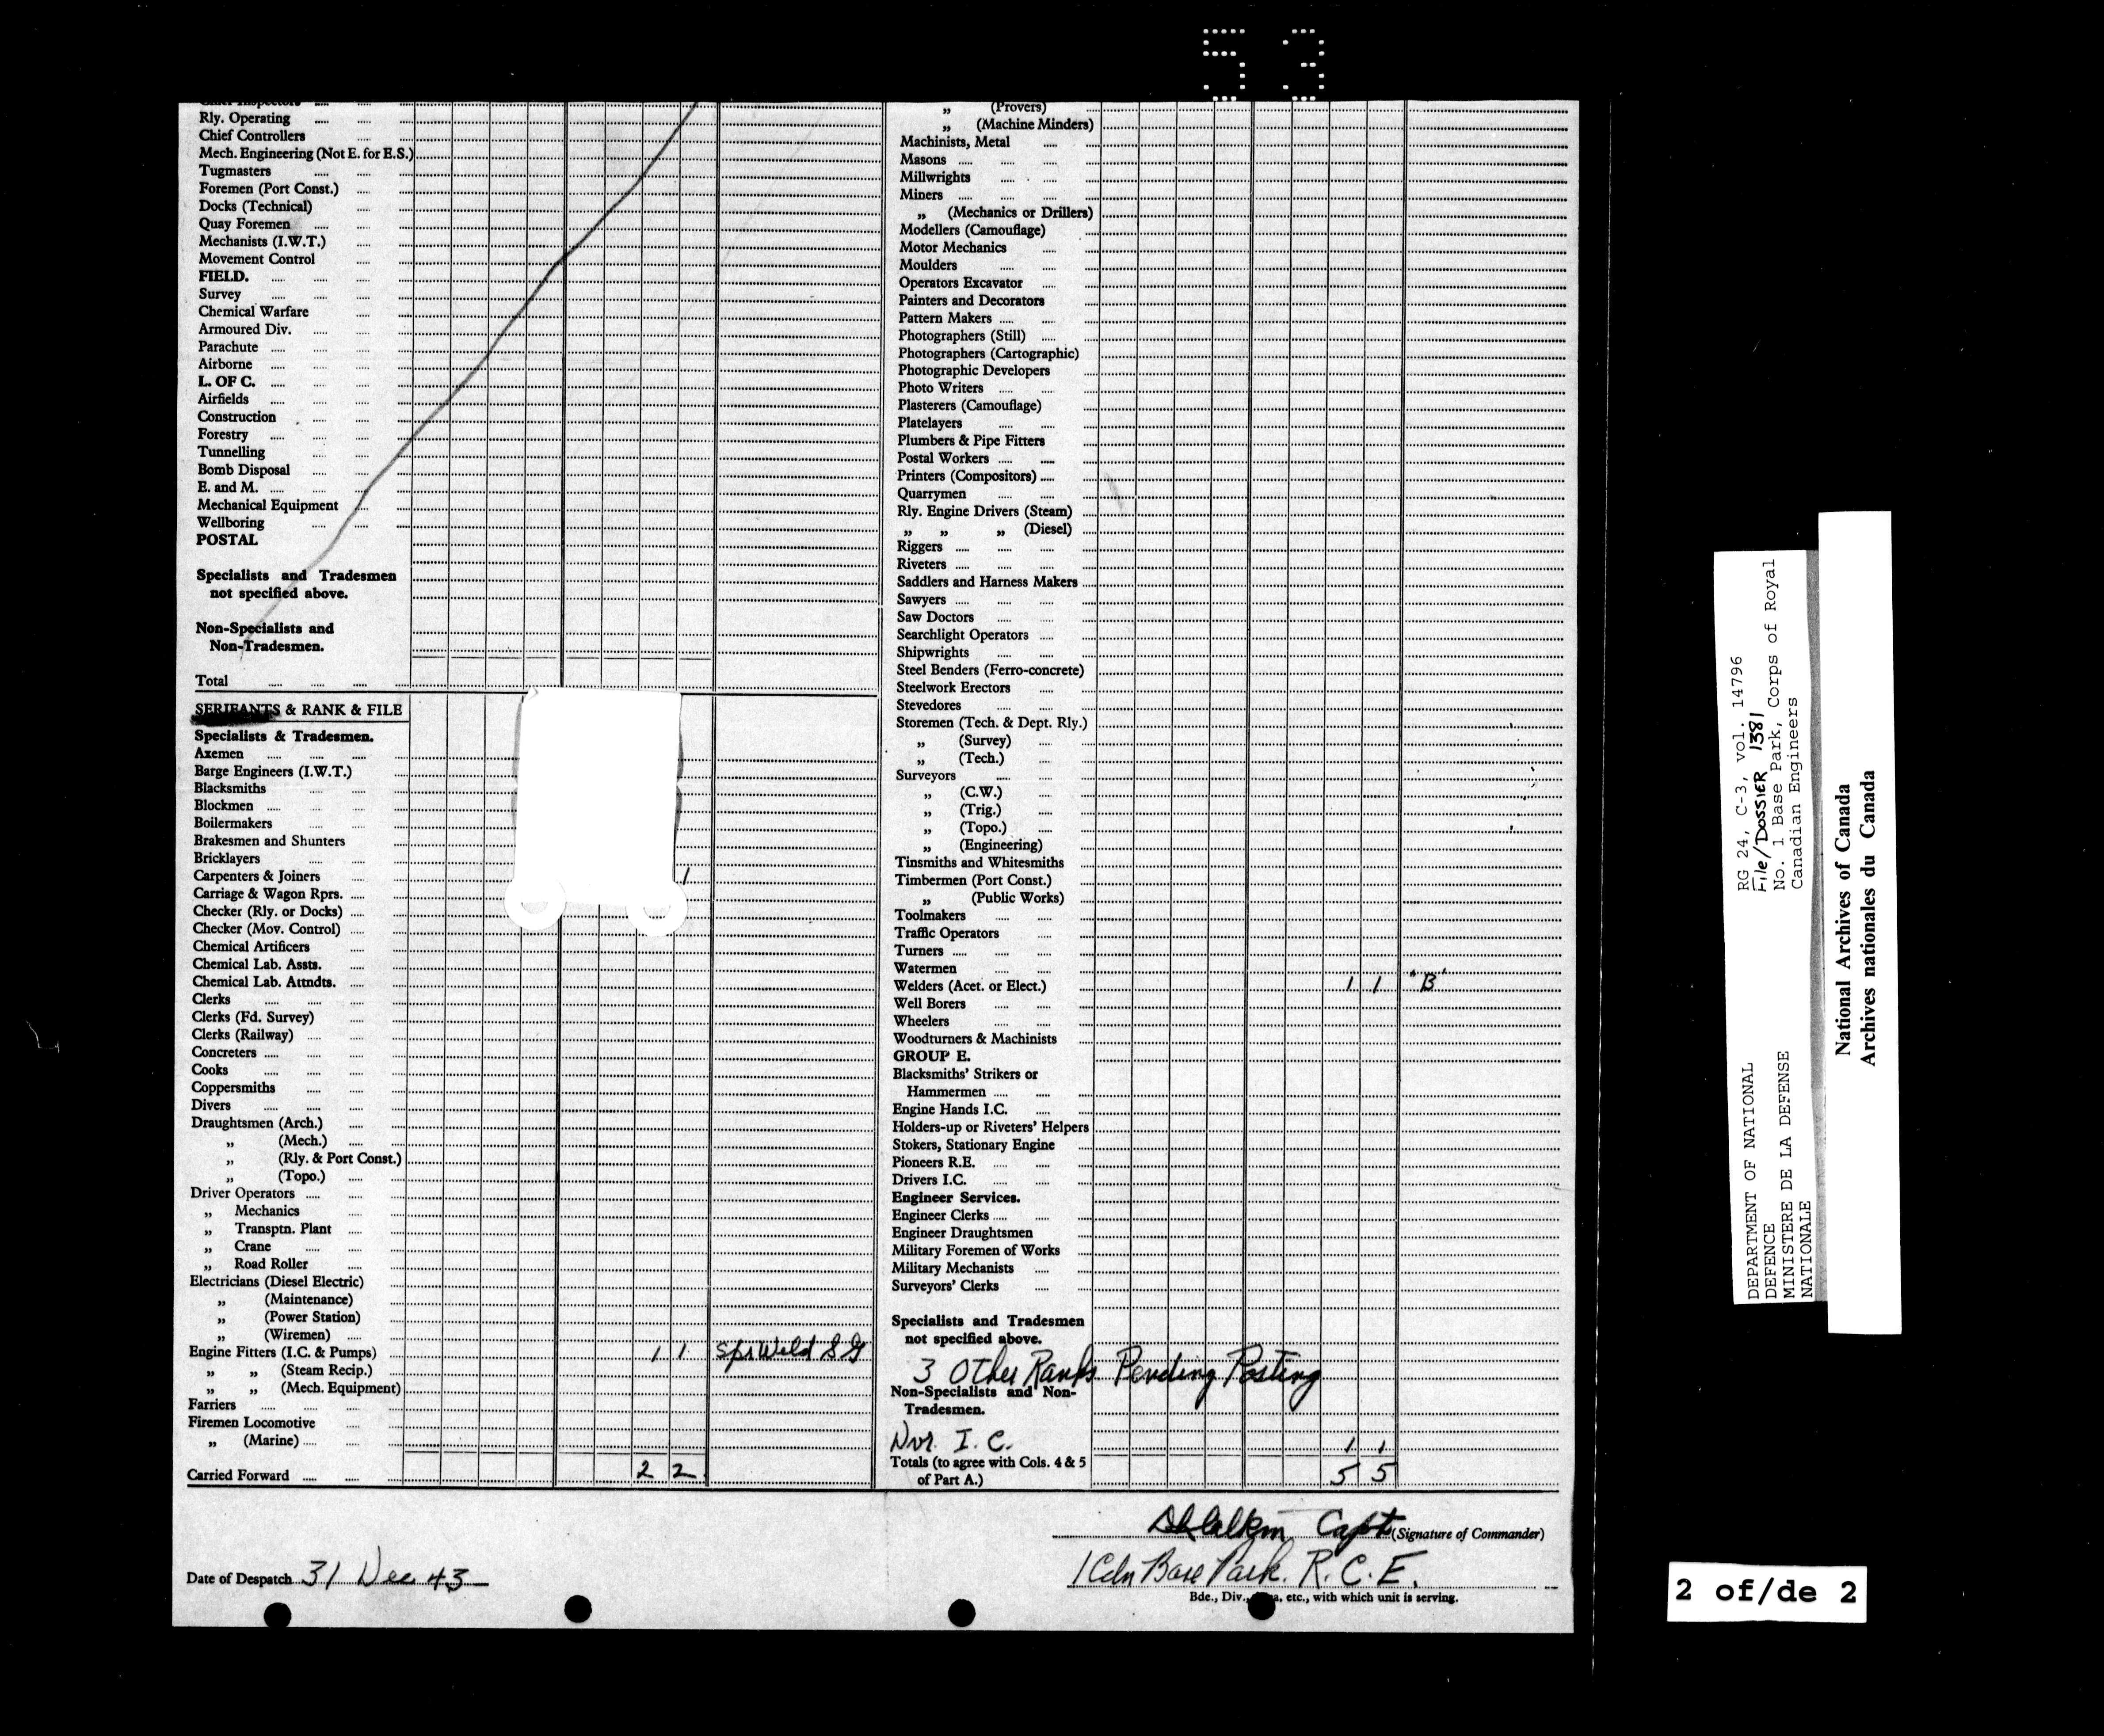 53
Chief Inspectors
Rly. Operating
Chief Controllers
Mech. Engineering (Not E. for E.S.)
Tugmasters
Foremen (Port Const.)
Docks (Technical)
Quay Foremen
Mechanists (I.W.T.)
Movement Control
FIELD.
Survey
Chemical Warfare
Armoured Div.
Parachute
Airborne
L. OF C.
Airfields
Construction
Forestry
Tunnelling
Bomb Disposal
E. and M.
Mechanical Equipment
Wellboring
POSTAL
Specialists and Tradesmen
not specified above.
Non-Specialists and
Non-Tradesmen.
Total
SERJEANTS & RANK & FILE
Specialists & Tradesmen.
Axemen
Barge Engineers (I.W.T.)
Blacksmiths
Blockmen
Boilermakers
Brakesmen and Shunters
Bricklayers
Carpenters & Joiners 1
Carriage & Wagon Rprs.
Checker (Rly. or Docks)
Checker (Mov. Control)
Chemical Artificers
Chemical Lab. Assts.
Chemical Lab. Attndts.
Clerks
Clerks (Fd. Survey)
Clerks (Railway)
Concreters
Cooks
Coppersmiths
Divers
Draughtsmen (Arch.)
„ (Mech.)
„ (Rly. & Port Const.)
„ (Topo.)
Driver Operators
„ Mechanics
„ Transptn. Plant
„ Crane
„ Road Roller
Electricians (Diesel Electric)
„ (Maintenance)
„ (Power Station)
„ (Wiremen)
Engine Fitters (I.C. & Pumps) 1 1
„ „ (Steam Recip.)
„ „ (Mech. Equipment)
Farriers
Firemen Locomotive
„ (Marine)
Carried Forward 2 2
„ (Provers)
„ (Machine Minders)
Machinists, Metal
Masons
Millwrights
Miners
„ (Mechanics or Drillers)
Modellers (Camouflage)
Motor Mechanics
Moulders
Operators Excavator
Painters and Decorators
Pattern Makers
Photographers (Still)
Photographers (Cartographic)
Photographic Developers
Photo Writers
Plasterers (Camouflage)
Platelayers
Plumbers & Pipe Fitters
Postal Workers
Printers (Compositors)
Quarrymen
Rly. Engine Drivers (Steam)
„ „ „ (Diesel)
Riggers
Riveters
Saddlers and Harness Makers
Sawyers
Saw Doctors
Searchlight Operators
Shipwrights
Steel Benders (Ferro-concrete)
Steelwork Erectors
Stevedores
Storemen (Tech. & Dept. Rly.)
„ (Survey)
„ (Tech.)
Surveyors
„ (C.W.)
„ (Trig.)
„ (Topo.)
„ (Engineering)
Tinsmiths and Whitesmiths
Timbermen (Port Const.)
„ (Public Works)
Toolmakers
Traffic Operators
Turners
Watermen
Welders (Acet. or Elect.) 1 1 "B"
Well Borers
Wheelers
Woodturners & Machinists
GROUP E.
Blacksmiths' Strikers or
Hammermen
Engine Hands I.C.
Holders-up or Riveters' Helpers
Stokers, Stationary Engine
Pioneers R.E.
Drivers I.C.
Engineer Services.
Engineer Clerks
Engineer Draughtsmen
Military Foremen of Works
Military Mechanists
Surveyors' Clerks
Specialists and Tradesmen
not specified above.
3 Other Ranks Pending Posting
Non-Specialists and Non-
Tradesmen.
Dvr. I. C. 1 1
Totals (to agree with Cols. 4 & 5
of Part A.) 5 5
Capt (Signature of Commander)
1 Cdn Base Park. R.C.E.
Bde., Div., etc., with which unit is serving.
Date of Despatch 31 Dec 43
RG 24, C-3, vol. 14796
File/DOSSIER 1381
No. 1 Base Park, Corps of Royal
Canadian Engineers
DEPARTMENT OF NATIONAL
DEFENCE
MINISTERE DE LA DEFENSE
NATIONALE
National Archives of Canada
Archives nationales du Canada
2 of/de 2